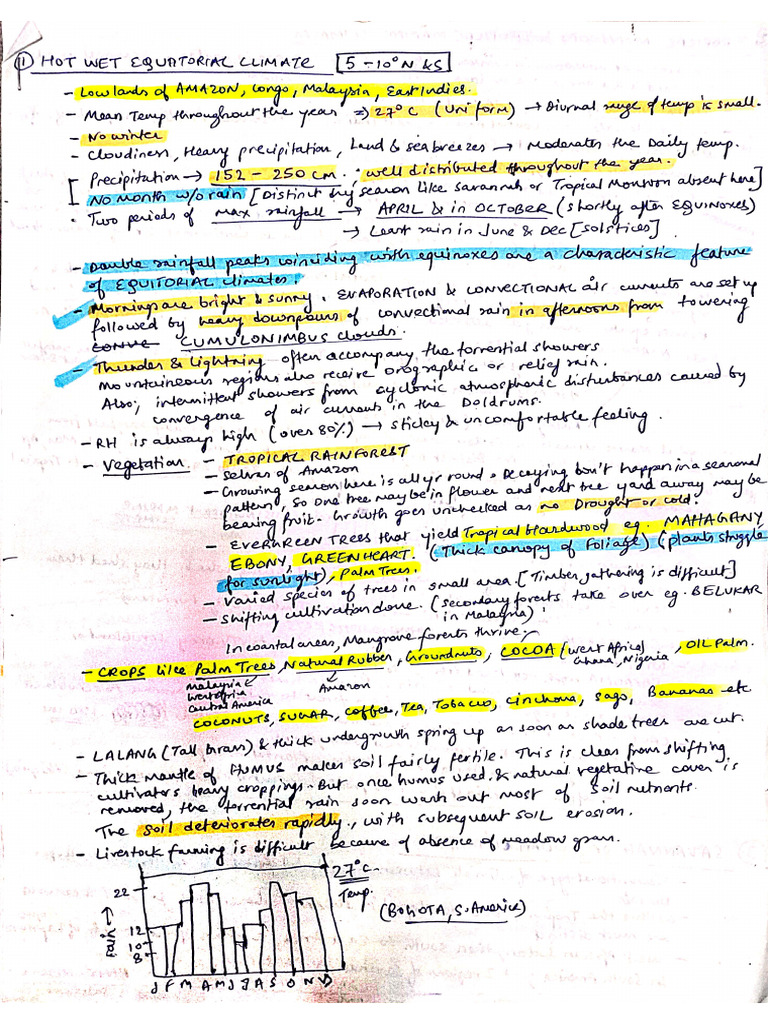 ① HOT WET EQUATORIAL CLIMATE [5-10° N & S]
- Lowlands of AMAZON, Congo, Malaysia, East Indies.
- Mean Temp throughout the year ⇒ 27°C (Uniform) → Diurnal range of temp is small.
- No winter
- Cloudiness, Heavy precipitation, Land & sea breezes → Moderates the Daily temp.
- Precipitation → 152 - 250 cm. · well distributed throughout the year.
No MONTH w/o rain [Distinct dry season like Savannah or Tropical Monsoon absent here]
· Two periods of max rainfall → APRIL & in OCTOBER (shortly after EQUINOXES)
→ Least rain in June & Dec [solstices]
- Double rainfall peaks coinciding with equinoxes are a characteristic feature
of EQUITORIAL climates.
- Mornings are bright & sunny. EVAPORATION & CONVECTIONAL air currents are set up
followed by heavy downpours of convectional rain in afternoons from towering
CUMULONIMBUS clouds.
- Thunder & Lightning often accompany the torrential showers
Mountaineous regions also receive orographic or relief rain.
Also; intermittent showers from cyclonic atmospheric disturbances caused by
convergence of air currents in the Doldrums.
- RH is always high (over 80%) → sticky & uncomfortable feeling.
- Vegetation - TROPICAL RAINFOREST
- Selvas of Amazon
- Growing season here is all yr round & Decaying don't happen in a seasonal
pattern, so one tree may be in flower and next tree yard away may be
bearing fruit. Growth goes unchecked as no Drought or cold.
- EVERGREEN TREES that yield Tropical Hardwood eg. MAHAGANY
EBONY, GREENHEART. (Thick canopy of Foliage) (plants struggle
for sunlight), Palm Trees.
- Varied species of trees in small area. [Timber gathering is difficult]
- Shifting cultivation done. (secondary forests take over eg. BELUKAR
in Malaysia)
In coastal areas, Mangrove forests thrive.
- CROPS like Palm Trees, Natural Rubber, Groundnuts, COCOA (West Africa) , OIL Palm.
Ghana, Nigeria
Malaysia Amazon
West Africa
Central America
COCONUTS, SUGAR, Coffee, Tea, Tobacco, Cinchona, Sago, Bananas etc
- LALANG (Tall Grass) & thick undergrowth spring up as soon as shade trees are cut.
- Thick mantle of HUMUS makes soil fairly fertile. This is clear from shifting
cultivators heavy croppings. But once humus used & natural vegetative cover is
removed, the torrential rain soon wash out most of soil nutrients.
The soil deteriorates rapidly, with subsequent soil erosion.
- Livestock farming is difficult because of absence of meadow grass.
27°C
22
Temp.
(BOGOTA, S. America)
12
10
8
J F M A M J J A S O N D